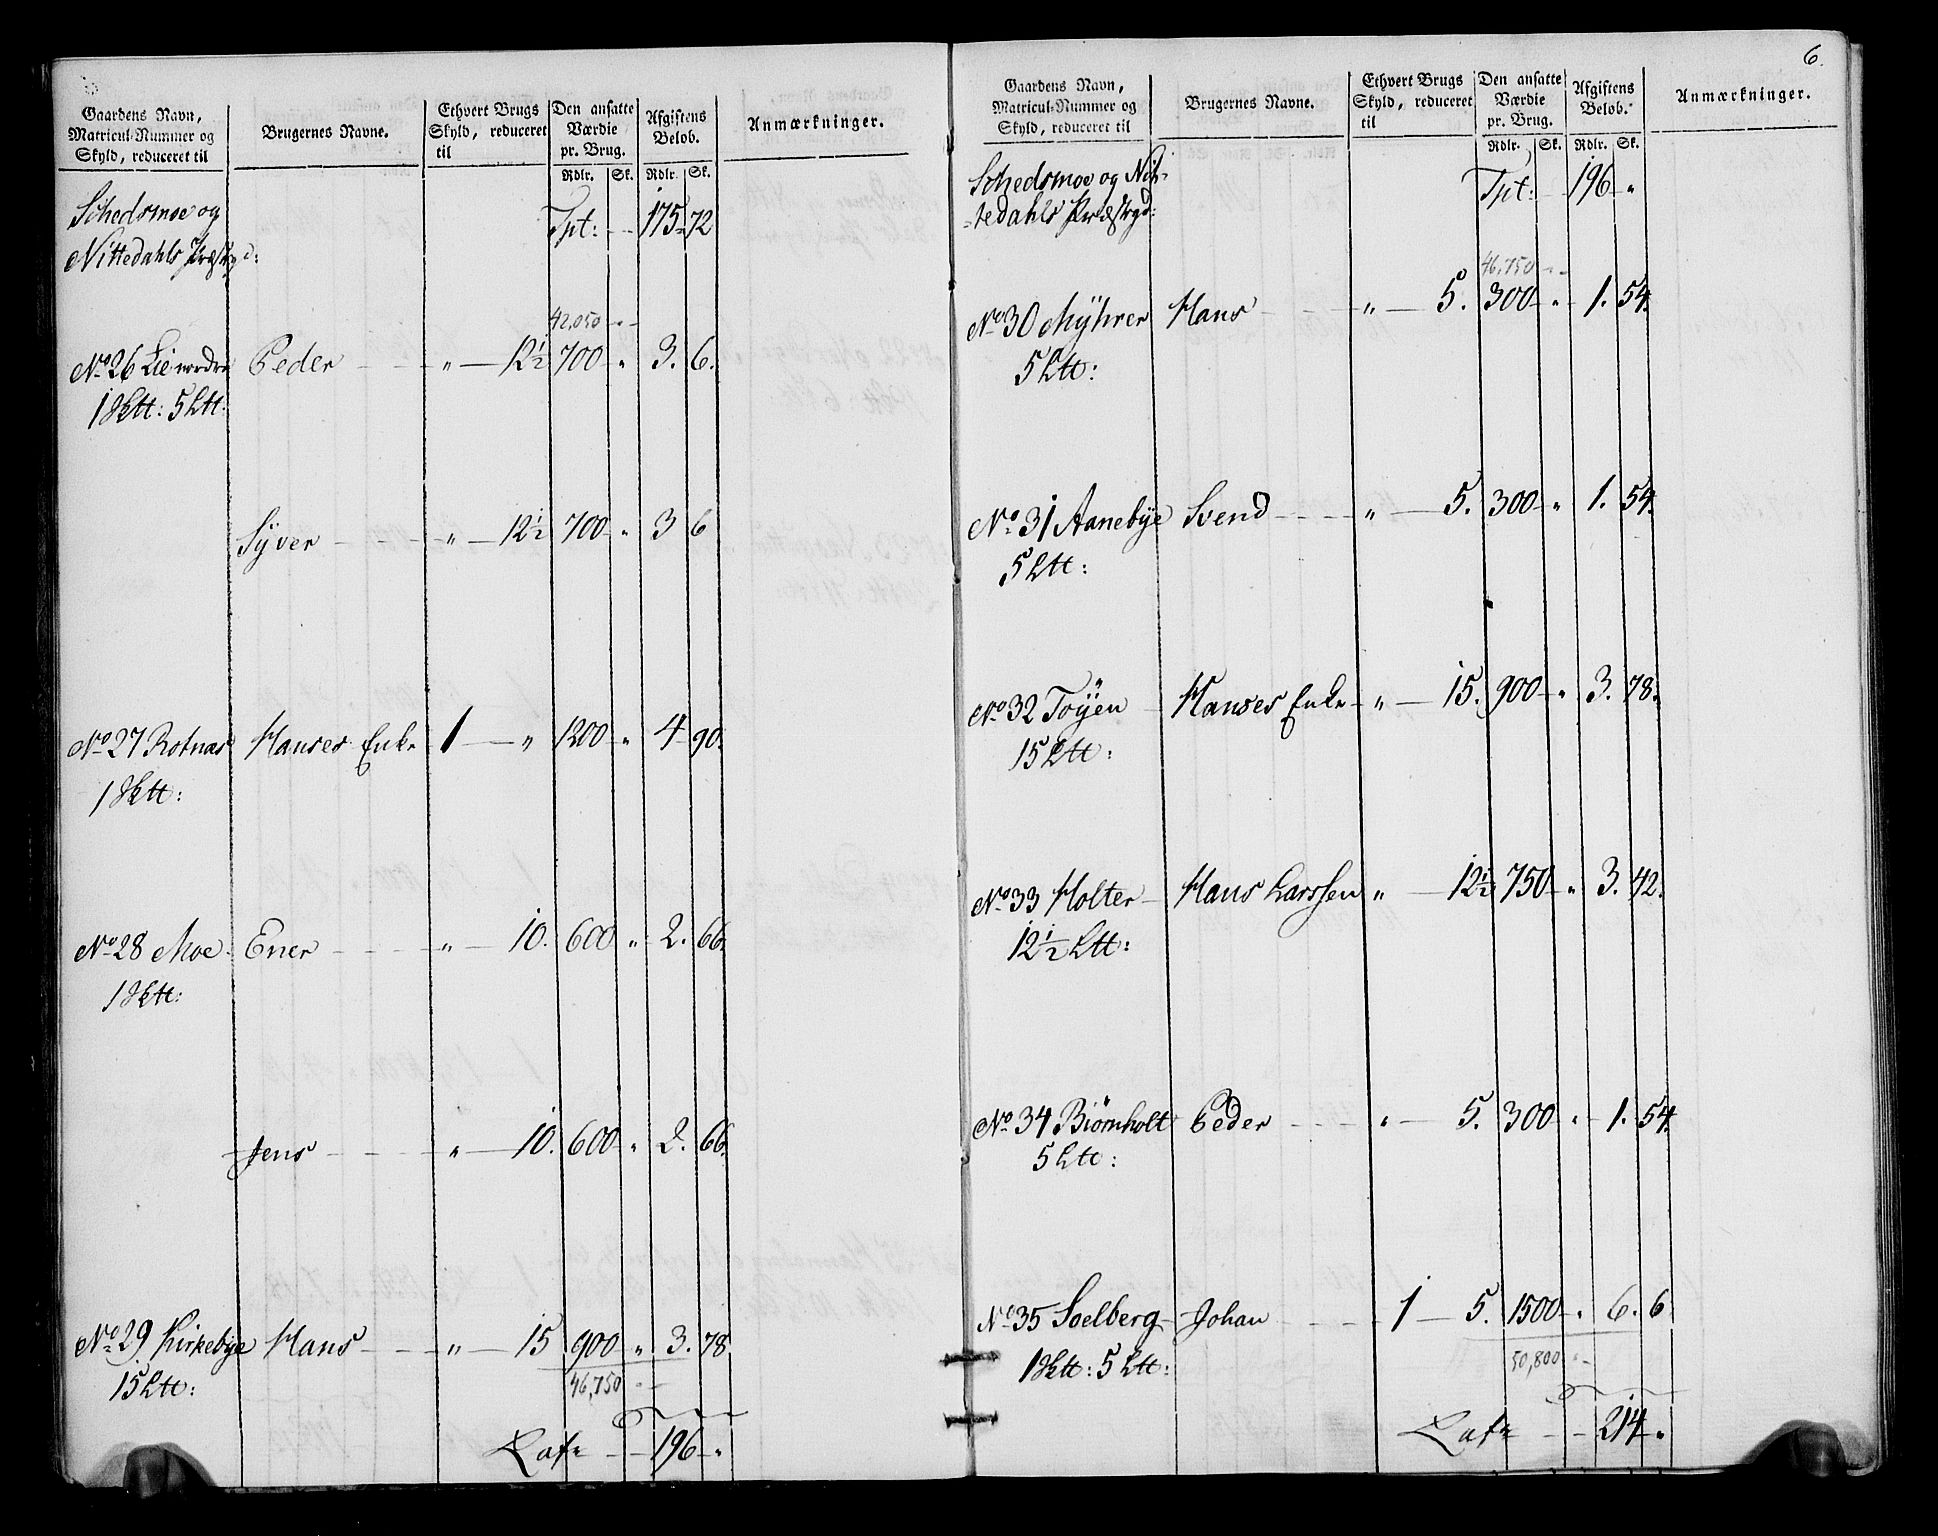 Gaardens Navn, Matricul-Nummer og Skyld, reduceret til | Brugernes Navne. | Ethvert Brugs Skyld, reduceret til | Den ansatte Værdie pr. Brug. Rdlr. Sk. | Afgiftens Beløb. Rdlr. Sk. | Anmærkninger.
Schedsmoe og Tpt: 175 72
Nittedahls Præstegd:
42,050
No 26 Lie nordre Peder " 12½ 700 " 3. 6.
1 Sktt: 5 Ltt:
Syver " 12½ 700 " 3 6
No 27 Rotnas Hanses Enke 1 " 1200 " 4 90.
1 Sktt:
No 28 Moe Ener " 10. 600 " 2. 66.
1 Sktt:
Jens " 10. 600 " 2. 66.
No 29 Kirkebye Hans " 15 900 " 3. 78
15 Ltt: 46,750
Lat 196 "
6.
Gaardens Navn, Matricul-Nummer og Skyld, reduceret til | Brugernes Navne. | Ethvert Brugs Skyld, reduceret til | Den ansatte Værdie pr. Brug. Rdlr. Sk. | Afgiftens Beløb. Rdlr. Sk. | Anmærkninger.
Schedsmoe og Nit- Tpt: 196 "
-tedahls Præstegd:
46,750
No 30 Myhrer Hans " 5. 300 " 1. 54.
5 Ltt:
No 31 Aanebye Svend " 5. 300 " 1. 54.
5 Ltt:
No 32 Töyen Hanses Enke " 15. 900 " 3. 78.
15 Ltt:
No 33 Holter Hans Larssen " 12½ 750 " 3. 42.
12½ Ltt:
No 34 Biörnholt Peder " 5. 300 " 1. 54.
5 Ltt:
No 35 Soelberg Johan 1 5. 1500 " 6. 6
1 Sktt: 5 Ltt: 50,800
Lat 214 "